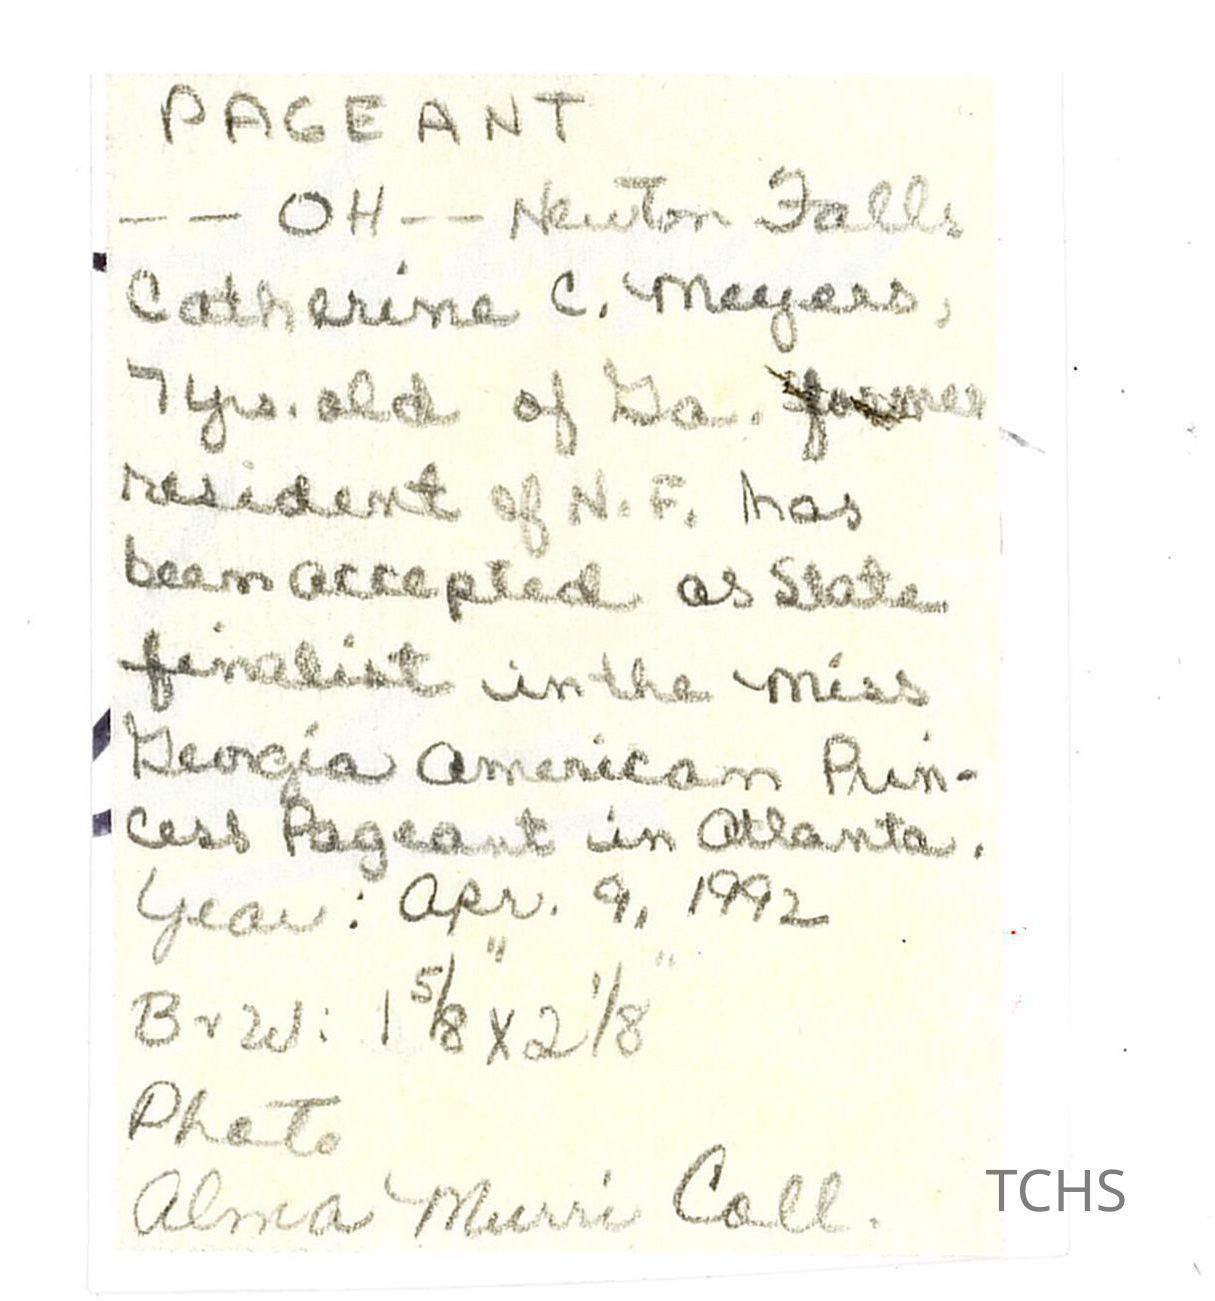 PAGEANT
-- OH -- Newton Falls
Catherine C. Meyers,
7 yrs. old of Ga. former
resident of N.F. has
been accepted as State
finalist in the Miss
Georgia American Prin-
cess Pageant in Atlanta.
Year: Apr. 9, 1992
B+W: 1 5/8" X 2 1/8"
Photo
Alma Murri Coll.
TCHS